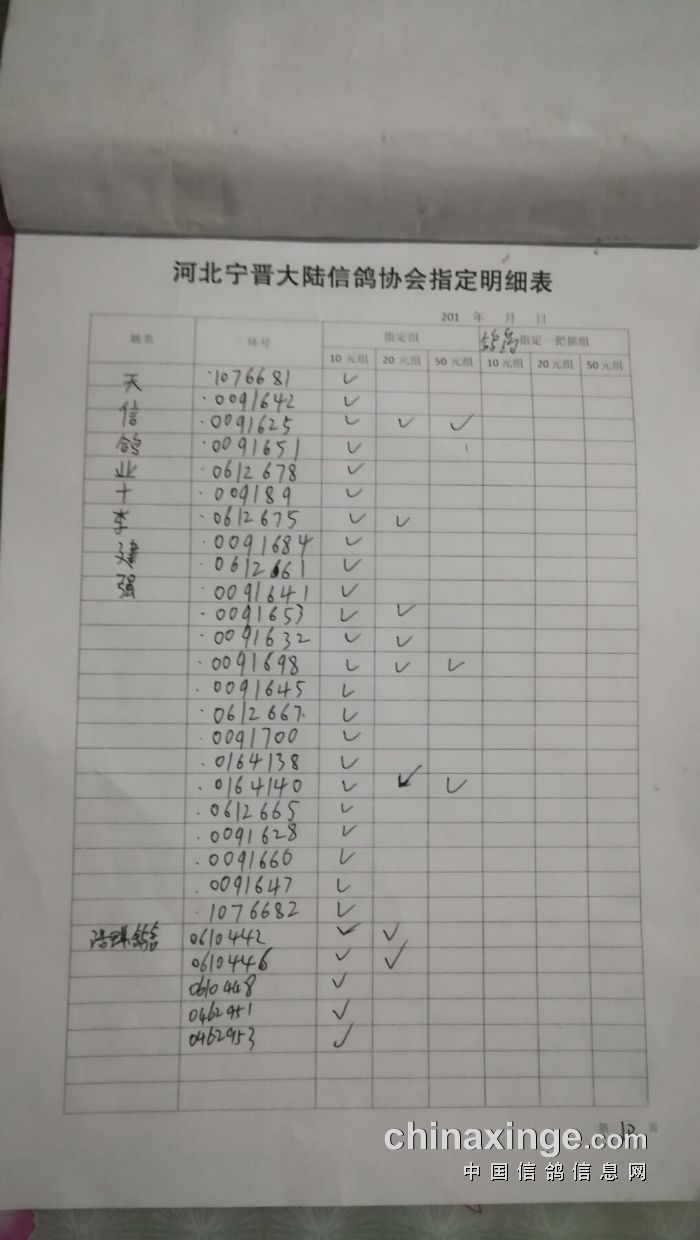 河北宁晋大陆信鸽协会指定明细表
201 年 月 日
姓名 环号 指定组 鸽 指定一把抓组
10元组 20元组 50元组 10元组 20元组 50元组
天 ·1076681 ✓
信 ·0091642 ✓
·0091625 ✓ ✓ ✓
鸽 ·0091651 ✓
业 ·0612678 ✓
十 ·009189 ✓
李 ·0612675 ✓ ✓
建 ·0091684 ✓
·0612661 ✓
强 ·0091641 ✓
·0091653 ✓ ✓
·0091632 ✓ ✓
·0091698 ✓ ✓ ✓
·0091645 ✓
·0612667 ✓
·0091700 ✓
·0164138 ✓
·0164140 ✓ ✓ ✓
·0612665 ✓
·0091628 ✓
·0091660 ✓
·0091647 ✓
·1076682 ✓
鸽舍 0610442 ✓ ✓
0610446 ✓ ✓
0610448 ✓
0462951 ✓
0462953 ✓
第 10 页
chinaxinge.com
中国信鸽信息网